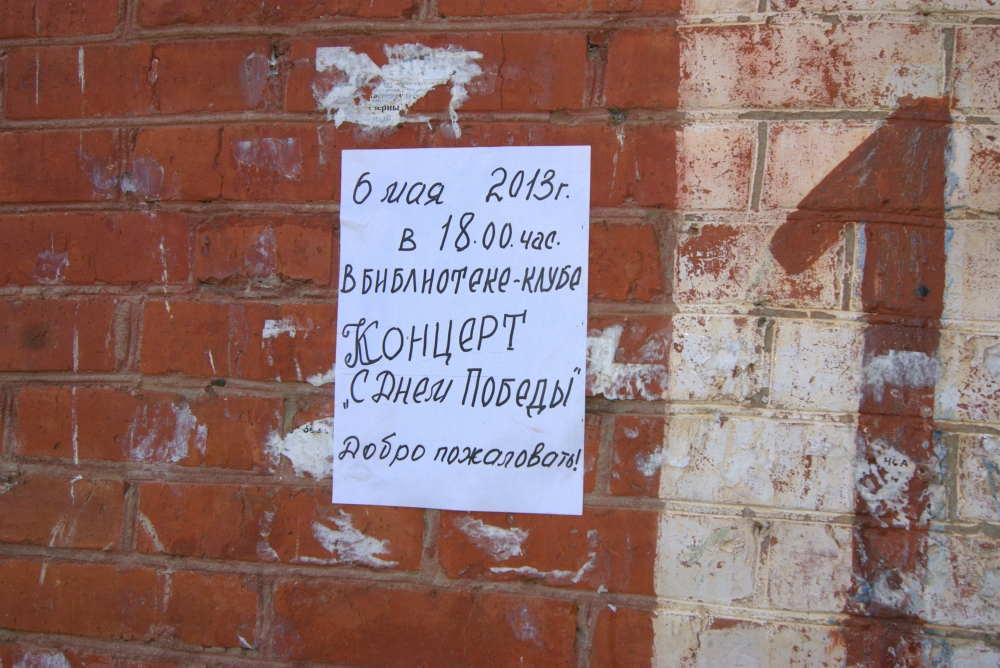 6 мая 2013г.
в 18.00.час.
В библиотеке-клубе
Концерт
„С Днем Победы"
Добро пожаловать!
1